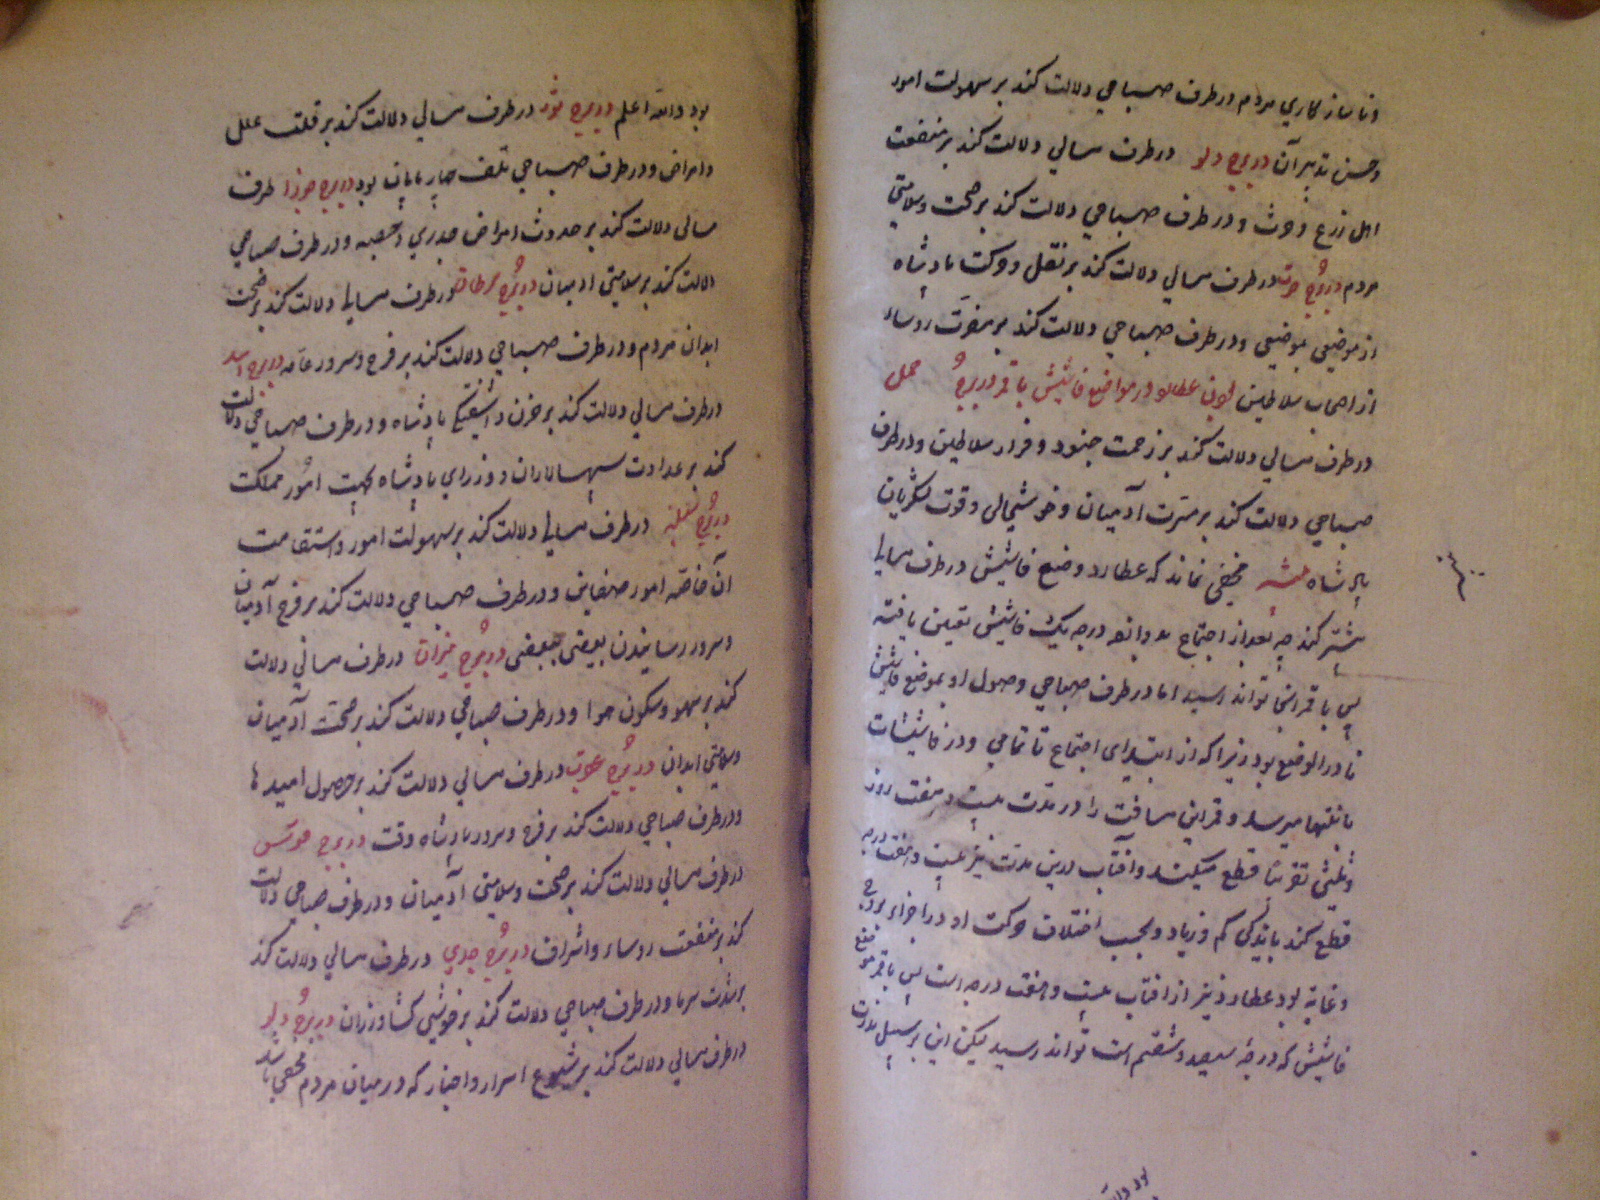 وناسازکاري مردم در طرف صباحي دلالت کند بر سهولت امور
وحسن تدبير آن در برج دلو در طرف مسائي دلالت کند بر منفعت
اهل زرع وحرث و در طرف صباحي دلالت کند بر صحت وسلامتي
مردم در برج حوت در طرف مسائي دلالت کند بر نقل وحرکت پادشاه
از موضعي بموضعي و در طرف صباحي دلالت کند بر مضرت روساء
از اصحاب سلاطين بودن عطارد در مواضع فاشيش با قمر در برج حمل
در طرف مسائي دلالت کند بر زحمت جنود و فرار سلاطين و در طرف
صباحي دلالت کند بر مسرت آدميان و خوشحالي و قوت لشکريان
پادشاه مخفي نماند که عطارد وضع فاشيش در طرف مسائي
بيشتر کند چه بعد از اجتماع بدوازده درجه يک فاشيش تعين يافته
پس با قمر انجا تواند رسيد اما در طرف صباحي وصول او بموضع فاشيش
نادر الوقوع بود زيرا که از ابتداي اجتماع تا تمامي ودر فاشيشات
بانتها ميرسد و قمر اين مسافت را در مدت بيست و هفت روز
وثلثي تقريبا قطع ميکند وآفتاب درين مدت نيز بيست وهفت درجه
قطع کند باندکي کم وزياد وبحسب اختلاف حرکت او در اجزاء بروج
وغايه بود عطارد نيز از افتاب بيست وهفت درجه است پس با قمر موضع
فاشيش که درجه سيصد وشصتم است تواند رسيد ليکن اين بر سبيل ندرت
بود والله
بود والله اعلم در برج ثور در طرف مسائي دلالت کند بر قلت علل
وامراض و در طرف صباحي تلف چارپايان بود در برج جوزا طرف
مسائي دلالت کند بر حدوث امراض جدري وحصبه و در طرف صباحي
دلالت کند بر سلامتي ادميان در برج سرطان در طرف مسائي دلالت کند بر صحت
ابدان مردم و در طرف صباحي دلالت کند بر فرح وسرور عامه در برج اسد
در طرف مسائي دلالت کند بر حزن واشفتگي پادشاه و در طرف صباحي دلالت
کند بر عداوت سپهسالاران ووزراي پادشاه بجهت امور مملکت
در برج سنبله در طرف مسائي دلالت کند بر سهولت امور واستقامت
آن خاصه امور ضعفا و در طرف صباحي دلالت کند بر فرح آدميان
وسرور رسانيدن بعضي ببعضي در برج ميزان در طرف مسائي دلالت
کند بر سهو وسکون هوا و در طرف صباحي دلالت کند بر صحت آدميان
وسلامتي ابدان در برج عقرب در طرف مسائي دلالت کند بر حصول اميدها
و در طرف صباحي دلالت کند بر فرح وسرور پادشاه وقت در برج قوس
در طرف مسائي دلالت کند بر صحت وسلامتي آدميان و در طرف صباحي دلالت
کند بر منفعت روساء واشراف در برج جدي در طرف مسائي دلالت کند
بر شدت سرما و در طرف صباحي دلالت کند بر خوشي کشاورزان در برج دلو
در طرف مسائي دلالت کند بر شيوع اسرار واخبار که در ميان مردم مخفي باشد